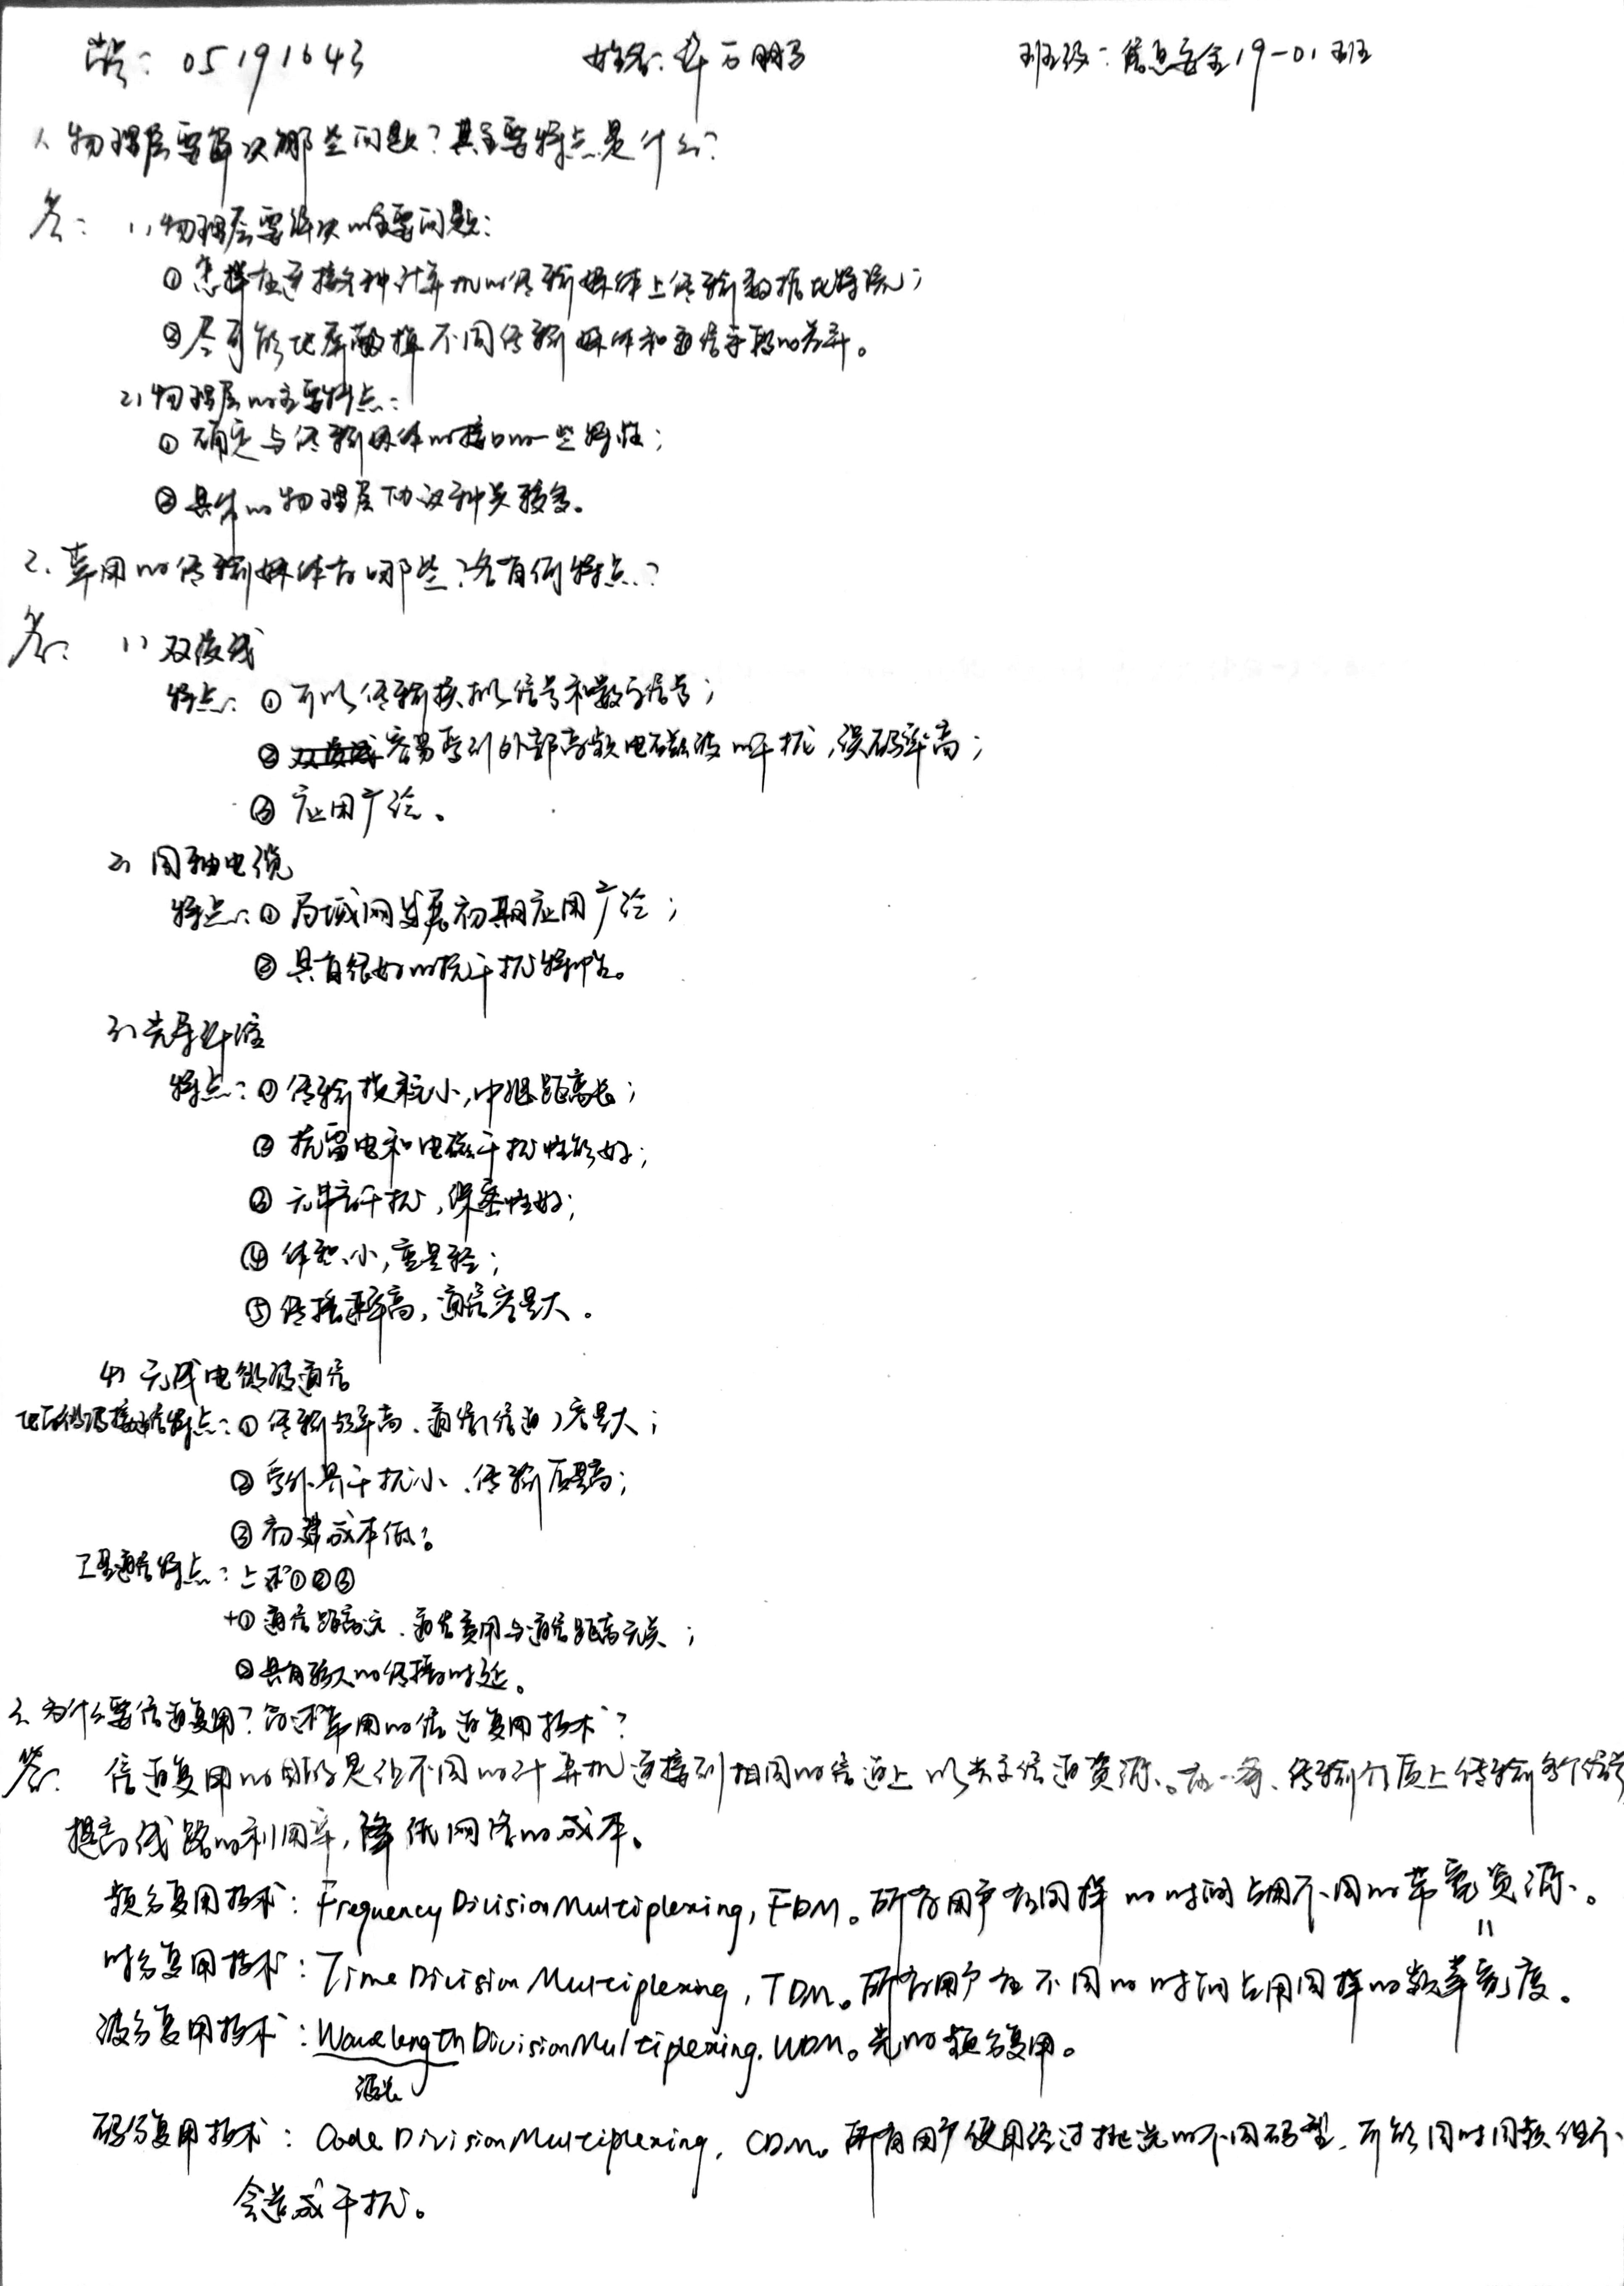 学号: 05191643 姓名: 李万鹏 班级: 信息安全19-01班
1. 物理层要解决哪些问题?其主要特点是什么?
答: 1) 物理层要解决的主要问题:
① 怎样在连接各种计算机的传输媒体上传输数据比特流;
② 尽可能地屏蔽掉不同传输媒体和通信手段的差异。
2) 物理层的主要特点:
① 确定与传输媒体的接口的一些特性;
② 具体的物理层协议种类较多。
2. 常用的传输媒体有哪些?各有何特点?
答: 1) 双绞线
特点: ① 可以传输模拟信号和数字信号;
② 容易受到外部高频电磁波的干扰,误码率高;
③ 应用广泛。
2) 同轴电缆
特点: ① 局域网发展初期应用广泛;
② 具有很好的抗干扰特性。
3) 光导纤维
特点: ① 传输损耗小,中继距离长;
② 抗雷电和电磁干扰性能好;
③ 无串音干扰,保密性好;
④ 体积小,重量轻;
⑤ 传播速率高,通信容量大。
4) 无线电微波通信
地面微波接力通信特点: ① 传输频率高、通信(信道)容量大;
② 受外界干扰小、传输质量高;
③ 初建成本低。
卫星通信特点: 上述①②③
+① 通信距离远、通信费用与通信距离无关;
② 具有较大的传播时延。
3. 为什么要信道复用?简述常用的信道复用技术?
答: 信道复用的目的是让不同的计算机连接到相同的信道上以共享信道资源。在一条传输介质上传输多个信号
提高线路的利用率,降低网络的成本。
频分复用技术: Frequency Division Multiplexing, FDM。所有用户在同样的时间占用不同的带宽资源。
时分复用技术: Time Division Multiplexing, TDM。所有用户在不同的时间占用同样的频率宽度。
波分复用技术: Wavelength Division Multiplexing. WDM。光的频分复用。
波长
码分复用技术: Code Division Multiplexing, CDM。所有用户使用经过挑选的不同码型,可能同时同频但不
会造成干扰。